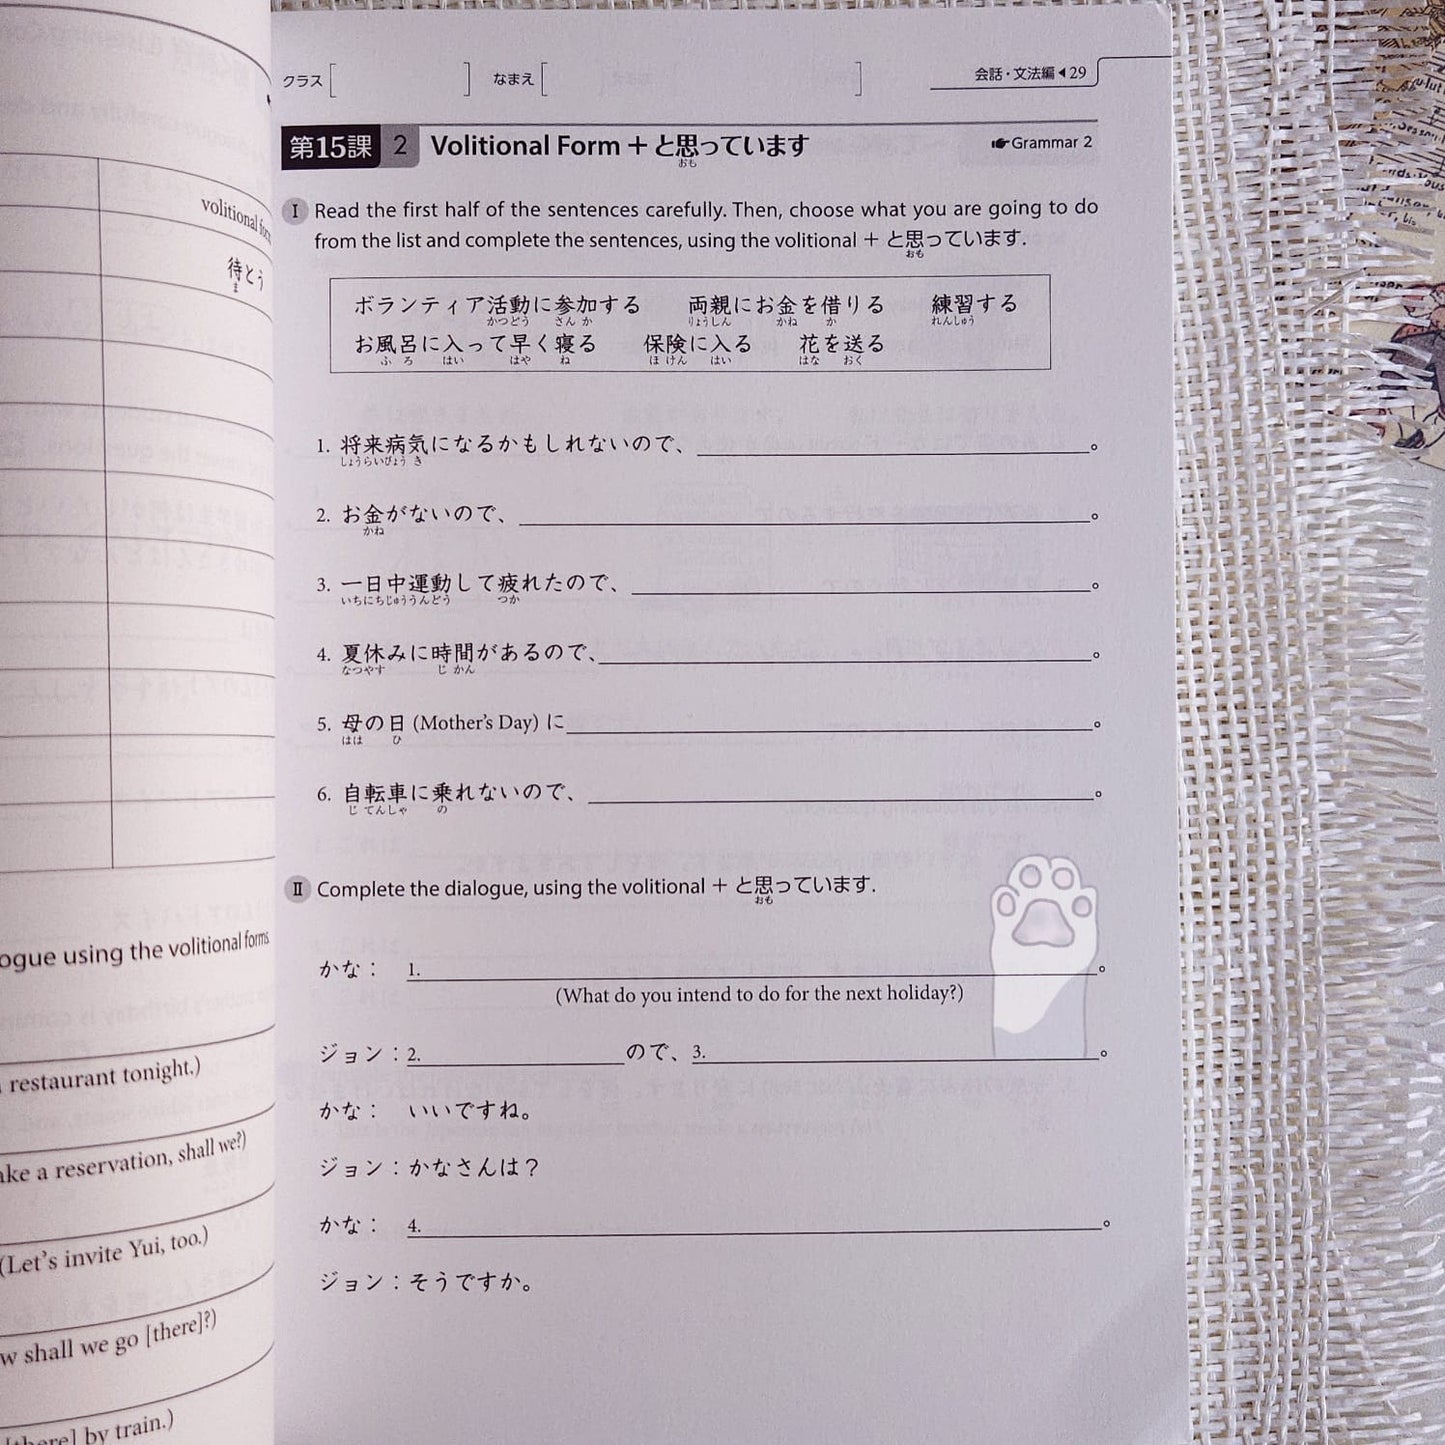 volitional
待とう
ま
ogue using the volitional forms
restaurant tonight.)
ake a reservation, shall we?)
(Let's invite Yui, too.)
w shall we go [there]?)
[there] by train.)
クラス[ ] なまえ[ ] 会話・文法編◀29
第15課 2 Volitional Form + と思っています ☛Grammar 2
おも
I Read the first half of the sentences carefully. Then, choose what you are going to do
from the list and complete the sentences, using the volitional + と思っています.
おも
ボランティア活動に参加する 両親にお金を借りる 練習する
かつどう さんか りょうしん かね か れんしゅう
お風呂に入って早く寝る 保険に入る 花を送る
ふ ろ はい はや ね ほけん はい はな おく
1. 将来病気になるかもしれないので、 。
しょうらいびょうき
2. お金がないので、 。
かね
3. 一日中運動して疲れたので、 。
いちにちじゅううんどう つか
4. 夏休みに時間があるので、 。
なつやす じかん
5. 母の日 (Mother's Day) に 。
はは ひ
6. 自転車に乗れないので、 。
じてんしゃ の
II Complete the dialogue, using the volitional + と思っています.
おも
かな： 1. 。
(What do you intend to do for the next holiday?)
ジョン：2. ので、3. 。
かな： いいですね。
ジョン：かなさんは？
かな： 4. 。
ジョン：そうですか。